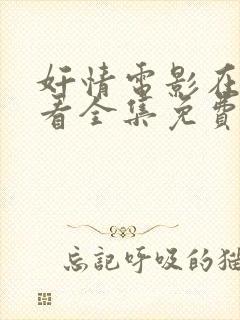 奸情電影在
看全集免費
忘記呼吸的猫